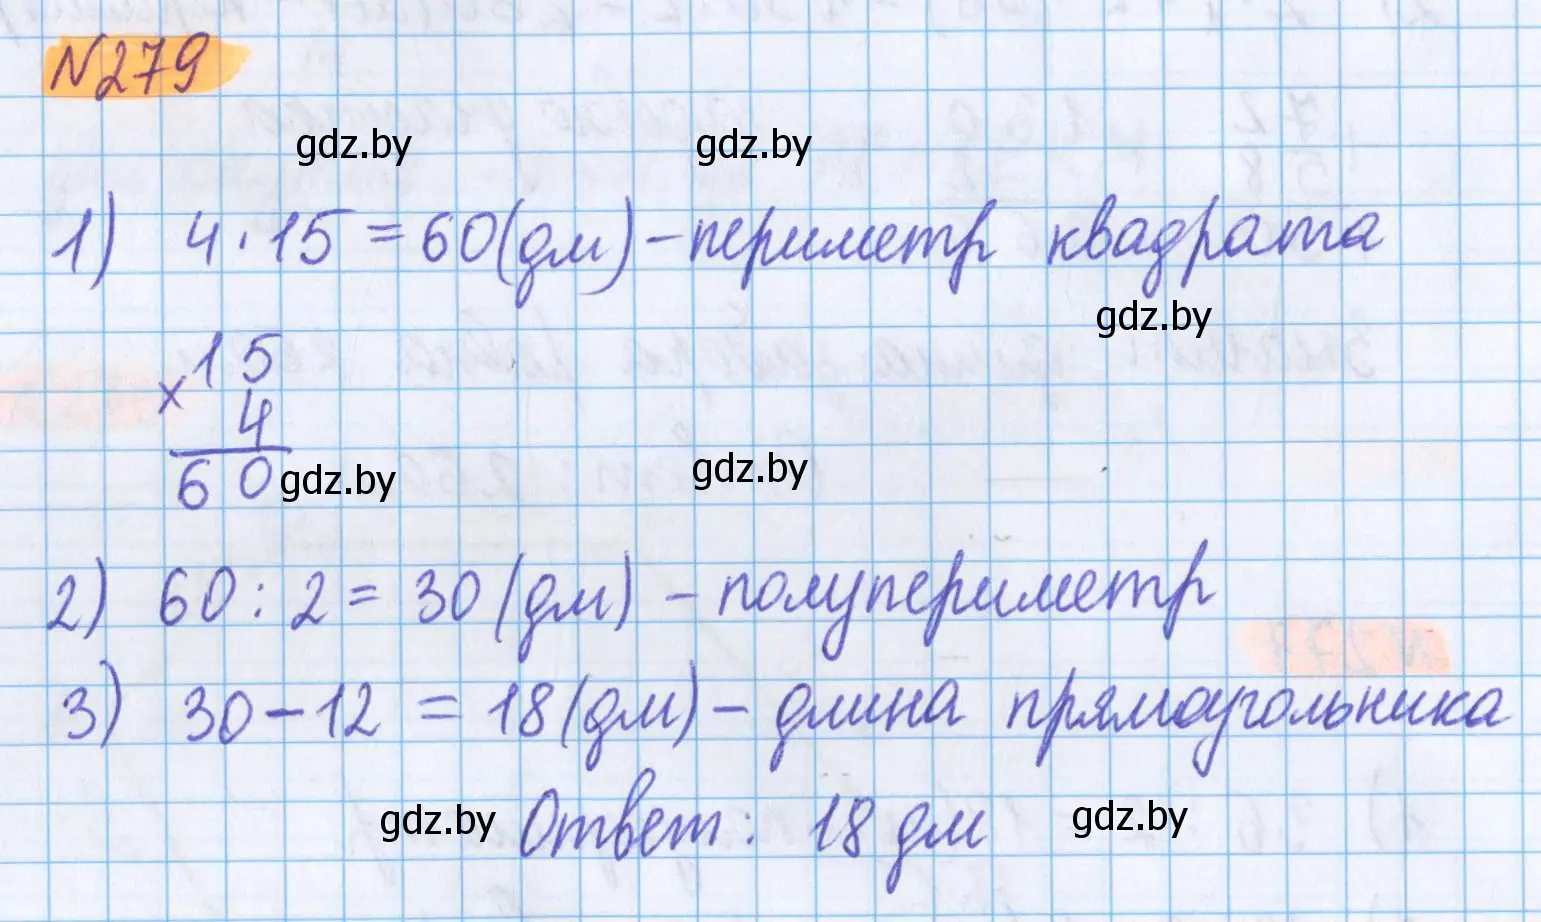 N279
gdz.by gdz.by
1) 4·15=60(дм)-периметр квадрата
gdz.by
×15
4
60 gdz.by gdz.by
2) 60:2=30(дм)-полупериметр
3) 30-12=18(дм)-длина прямоугольника
gdz.by Ответ: 18 дм gdz.by